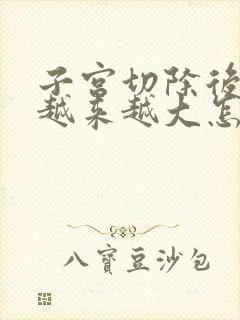 子宫切除後
越来越大怎
八寳豆沙包